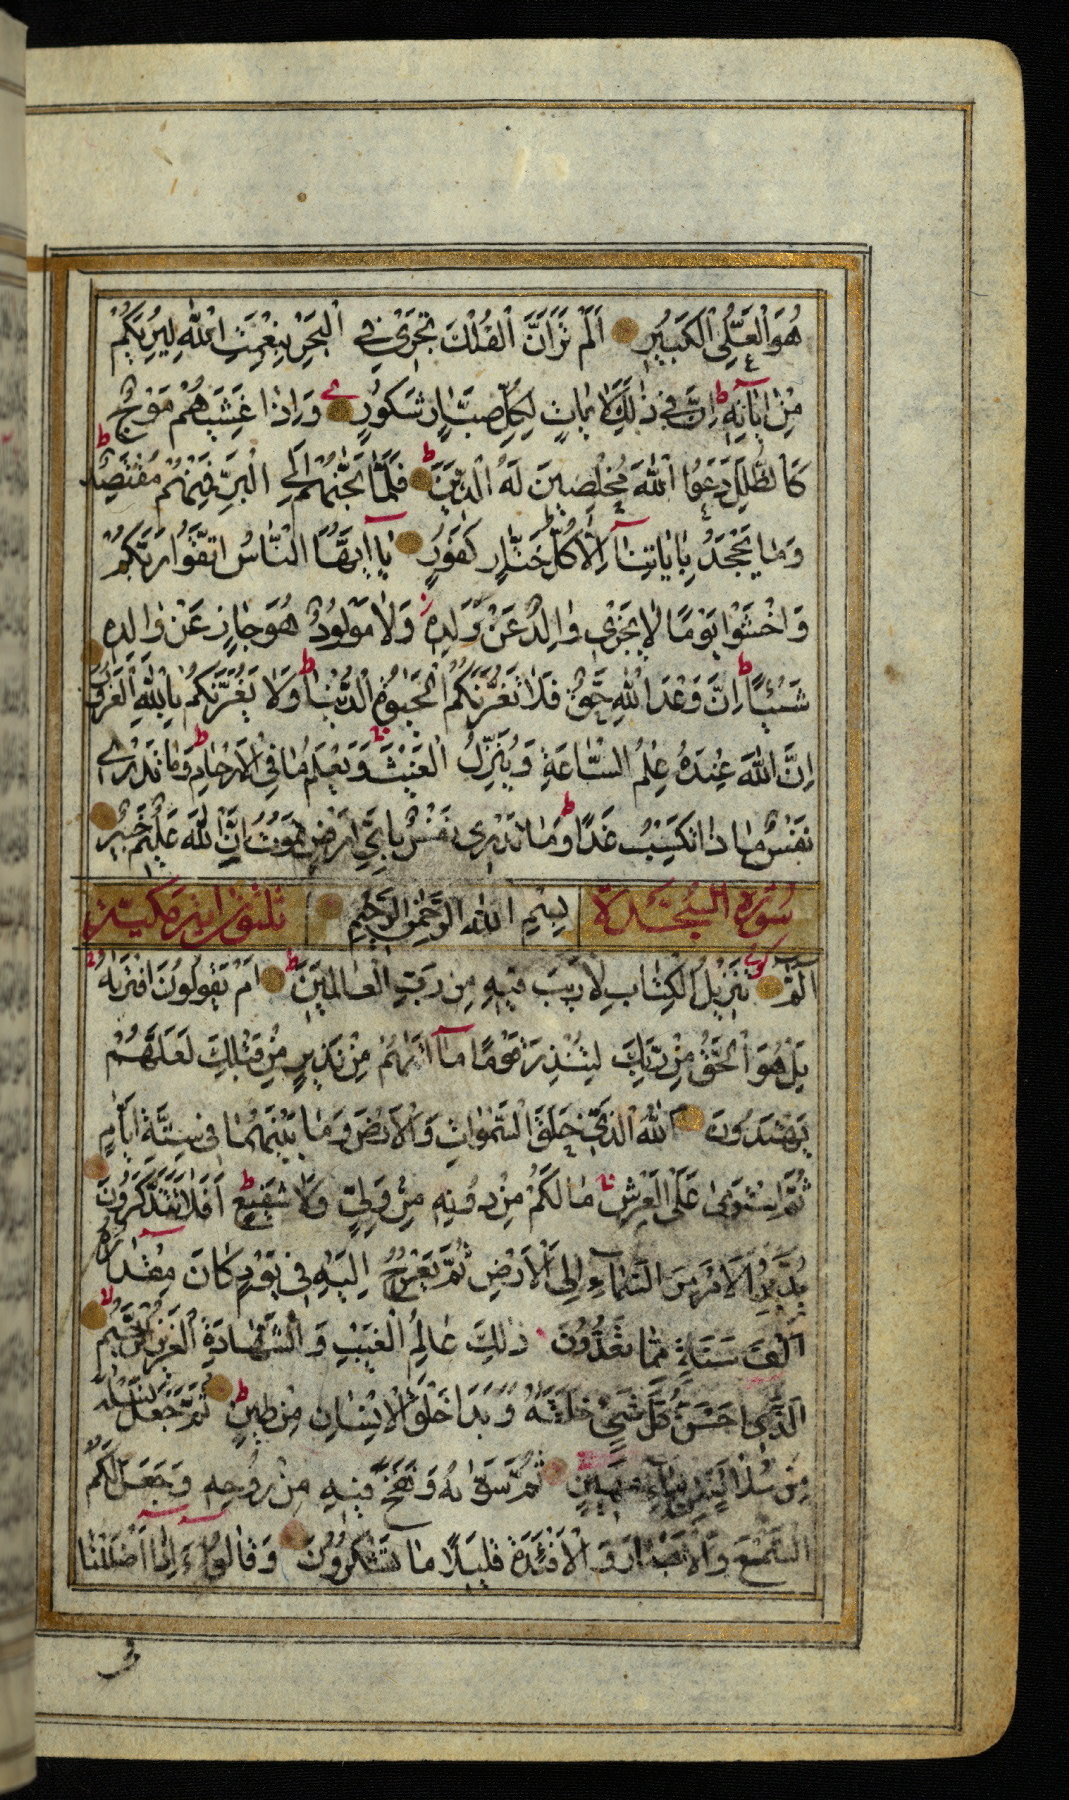 هُوَ الْعَلِيُّ الْكَبِيرُ اَلَمْ تَرَ اَنَّ الْفُلْكَ تَجْرِي فِي الْبَحْرِ بِنِعْمَتِ اللّٰهِ لِيُرِيَكُمْ
مِنْ اٰيَاتِهٖ ط اِنَّ فِي ذٰلِكَ لَاٰيَاتٍ لِكُلِّ صَبَّارٍ شَكُورٍ وَاِذَا غَشِيَهُمْ مَوْجٌ
كَالظُّلَلِ دَعَوُا اللّٰهَ مُخْلِصِينَ لَهُ الدِّينَ فَلَمَّا نَجّٰىهُمْ اِلَى الْبَرِّ فَمِنْهُمْ مُقْتَصِدٌ ط
وَمَا يَجْحَدُ بِاٰيَاتِنَا اِلَّا كُلُّ خَتَّارٍ كَفُورٍ يَا اَيُّهَا النَّاسُ اتَّقُوا رَبَّكُمْ
وَاخْشَوْا يَوْمًا لَا يَجْزِي وَالِدٌ عَنْ وَلَدِهٖ وَلَا مَوْلُودٌ هُوَ جَازٍ عَنْ وَالِدِهٖ
شَيْئًا ط اِنَّ وَعْدَ اللّٰهِ حَقٌّ فَلَا تَغُرَّنَّكُمُ الْحَيٰوةُ الدُّنْيَا ط وَلَا يَغُرَّنَّكُمْ بِاللّٰهِ الْغَرُورُ
اِنَّ اللّٰهَ عِنْدَهُ عِلْمُ السَّاعَةِ وَيُنَزِّلُ الْغَيْثَ وَيَعْلَمُ مَا فِي الْاَرْحَامِ ط وَمَا تَدْرِي
نَفْسٌ مَاذَا تَكْسِبُ غَدًا ط وَمَا تَدْرِي نَفْسٌ بِاَيِّ اَرْضٍ تَمُوتُ اِنَّ اللّٰهَ عَلِيمٌ خَبِيرٌ
سُورَةُ السَّجْدَة بِسْمِ اللّٰهِ الرَّحْمٰنِ الرَّحِيمِ ثلثون اية مكية
الٓمّٓ تَنْزِيلُ الْكِتَابِ لَا رَيْبَ فِيهِ مِنْ رَبِّ الْعَالَمِينَ ط اَمْ يَقُولُونَ افْتَرٰىهُ
بَلْ هُوَ الْحَقُّ مِنْ رَبِّكَ لِتُنْذِرَ قَوْمًا مَا اَتٰىهُمْ مِنْ نَذِيرٍ مِنْ قَبْلِكَ لَعَلَّهُمْ
يَهْتَدُونَ اَللّٰهُ الَّذِي خَلَقَ السَّمٰوَاتِ وَالْاَرْضَ وَمَا بَيْنَهُمَا فِي سِتَّةِ اَيَّامٍ
ثُمَّ اسْتَوٰى عَلَى الْعَرْشِ مَا لَكُمْ مِنْ دُونِهٖ مِنْ وَلِيٍّ وَلَا شَفِيعٍ ط اَفَلَا تَتَذَكَّرُونَ
يُدَبِّرُ الْاَمْرَ مِنَ السَّمَاءِ اِلَى الْاَرْضِ ثُمَّ يَعْرُجُ اِلَيْهِ فِي يَوْمٍ كَانَ مِقْدَارُهُ
اَلْفَ سَنَةٍ مِمَّا تَعُدُّونَ ذٰلِكَ عَالِمُ الْغَيْبِ وَالشَّهَادَةِ الْعَزِيزُ الرَّحِيمُ
الَّذِي اَحْسَنَ كُلَّ شَيْءٍ خَلَقَهُ وَبَدَاَ خَلْقَ الْاِنْسَانِ مِنْ طِينٍ ط ثُمَّ جَعَلَ نَسْلَهُ
مِنْ سُلَالَةٍ مِنْ مَاءٍ مَهِينٍ ثُمَّ سَوّٰىهُ وَنَفَخَ فِيهِ مِنْ رُوحِهٖ وَجَعَلَ لَكُمُ
السَّمْعَ وَالْاَبْصَارَ وَالْاَفْئِدَةَ قَلِيلًا مَا تَشْكُرُونَ وَقَالُوا ءَاِذَا ضَلَلْنَا
فى